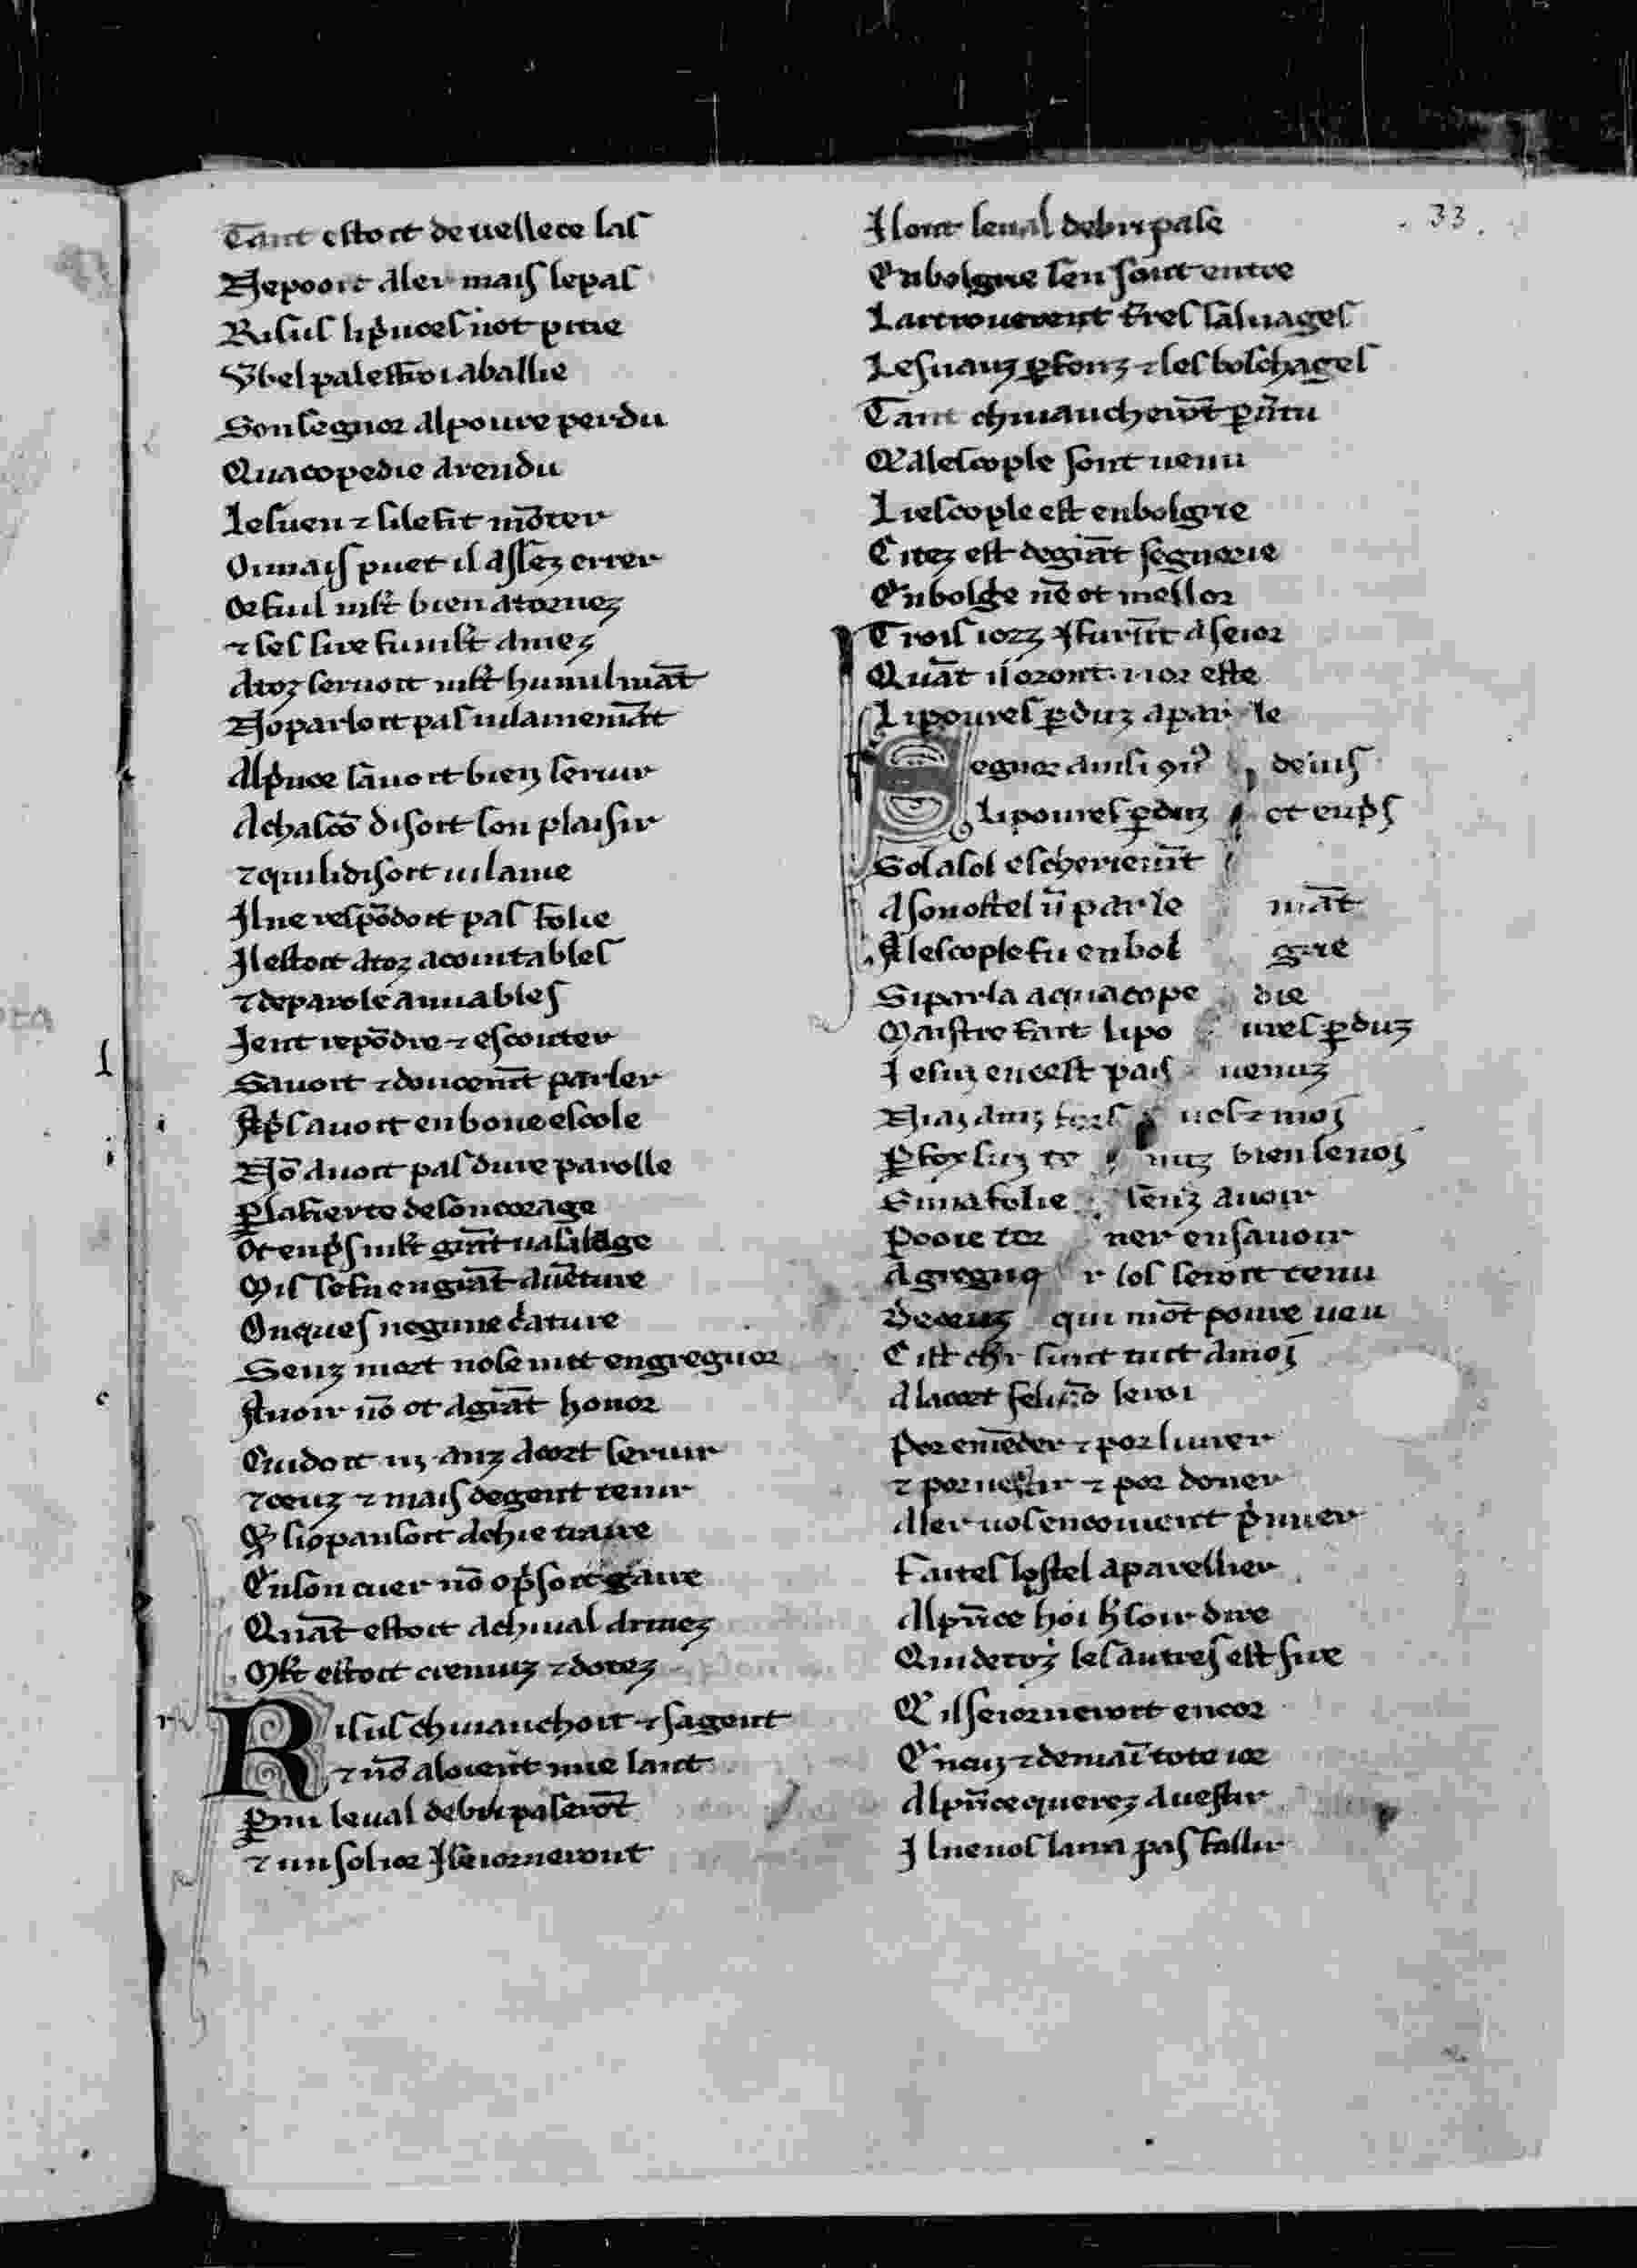 33
Tant estoit de uellece las
Ne pooit aler mais le pas
Risus li p̃nces not pitie
Son segnor al poure perdu
Quacopedie a rendu
Ie suen ⁊ si le fit mõter
Oi mais puet il assez errer
Or fu il mlt bien atornez
⁊ ses sire fu mlt amez
A toz seruoit mlt humilmãt
No parloit pas uilainemãt
Al p̃nce sauoit bien seruir
A chascõ disoit son plaisir
⁊ qui li disoit uilanie
Il ne respõdoit pas folie
Il estoit a toz acointables
⁊ de parole amiables
Ient repõdre ⁊ escouter
Sauoit ⁊ doucemt̃ parler
Ap̃s auoit en bone escole
Nõ auoit pas dure parolle
ꝑ la fierte de son corage
Ot enp̃s mlt grãt uasilage
Mis se fu en grãt auẽture
Onques negune c̃ature
Senz mort nose mit en gregnor
Auoir nõ ot a grãt honor
Cuidoit uz anz a cort seruir
⁊ ceuz ⁊ mais de gent tenir
En son cuer nõ op̃soit gaire
Quãt estoit a chiual armez
Mlt estoit cremuz ⁊ dotez
Risus chiuauchoit ⁊ sa gent
⁊ nõ aloient mie lant
Pmi le ual de brı paserõt
⁊ un sol ior I seiorneront
Il ont le ual de bri pase
En bolgrie sen sont entre
La trouerent t̃res saluages
Les uauz ꝑfonz ⁊ les boschages
Tant chiuaucherõt
Qa lescople sont uenu
Li escople est en bolgrie
Citez est de grãt segnorie
En bolgẽ nẽ ot mellor
Trois iorz I furẽt a seior
Quãt il oront .i. ior este
Li poures ꝑduz a parle
Segnor ausi deuis
Li poures ꝑduz ot enp̃s
Sol a sol eschieriemt̃
A son ostel ũ parlemãt
A lescople fu en bolgrie
Si parla a quacopedie
Maistre fait li poures ꝑduz
Ie suz en cest pais uenuz
Niaz auiz fors uos ⁊ moi
ꝑ fox suz tenuz bien le uoi
Si ma folie senz auoir
Pooie torner en sauoir
A gregnor los seroit tenu
De ceuz qui mõt poure ueu
Cist chr sunt tuit a moi
A la cort felipõ le roi
Por emẽder ⁊ por liurer
⁊ por uestir ⁊ por doner
Aler uos en couient p̃muer
Faites lostel aparellier
Al p̃nce hoi
Qui de toz les autres est sire
Qil seiorneroit encor
Encuz ⁊ demaĩ tote ior
Al p̃nce querez a uestir
Il ne uos laira pas fallir